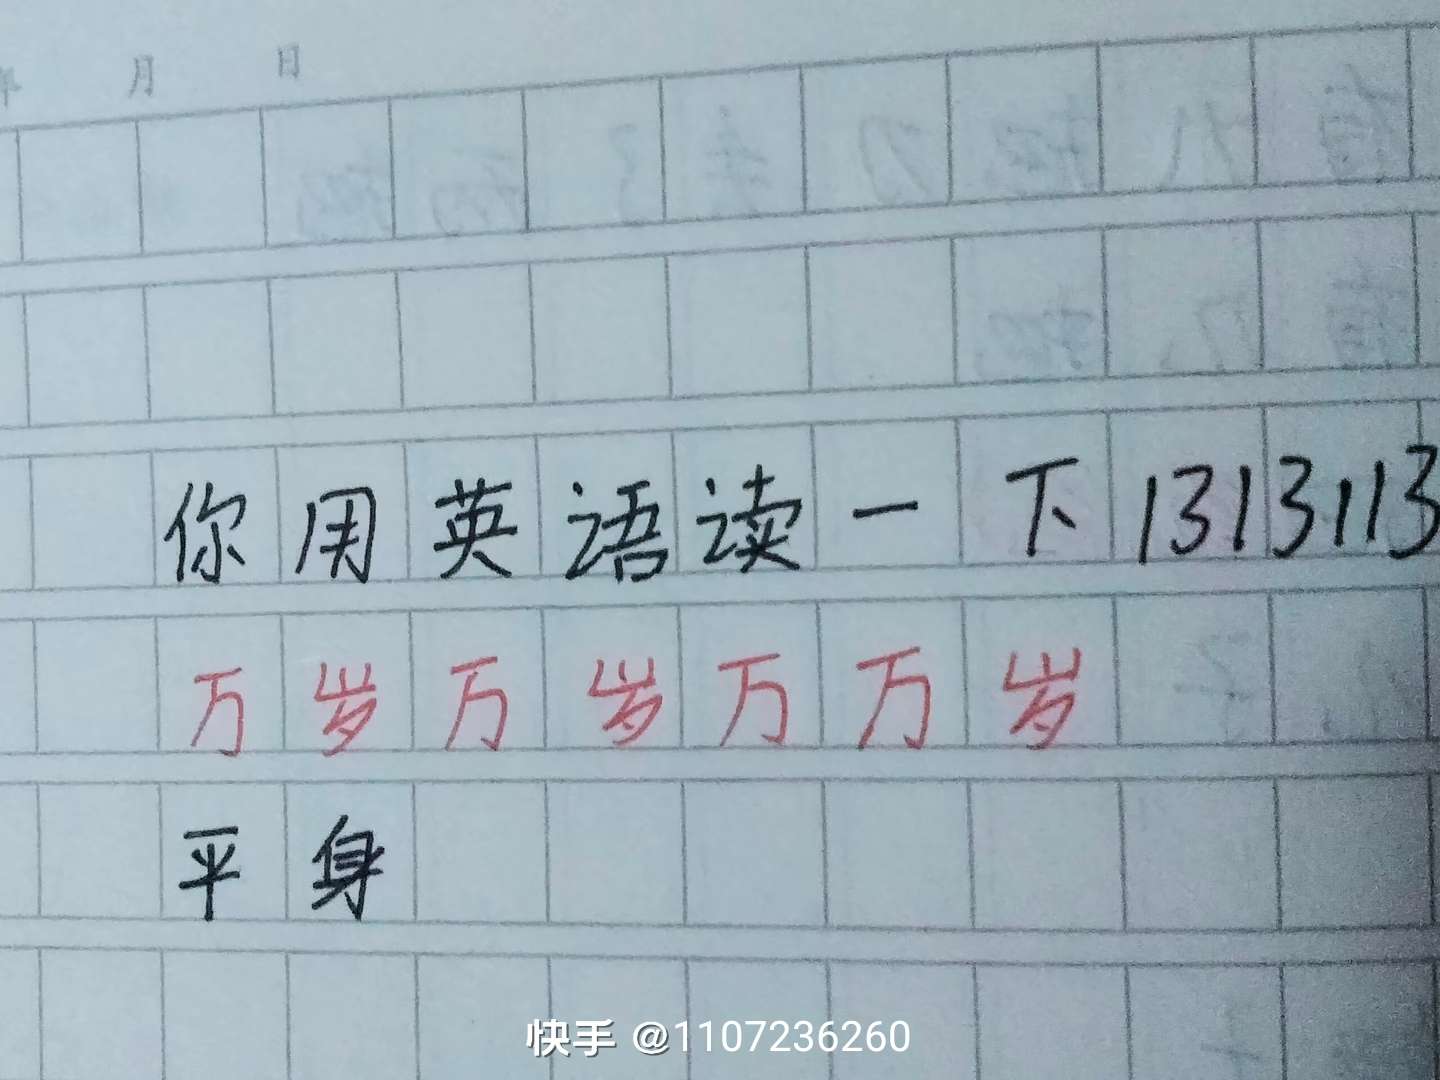 月 日
你用英语读一下1313113
万岁万岁万万岁
平身
快手 @1107236260